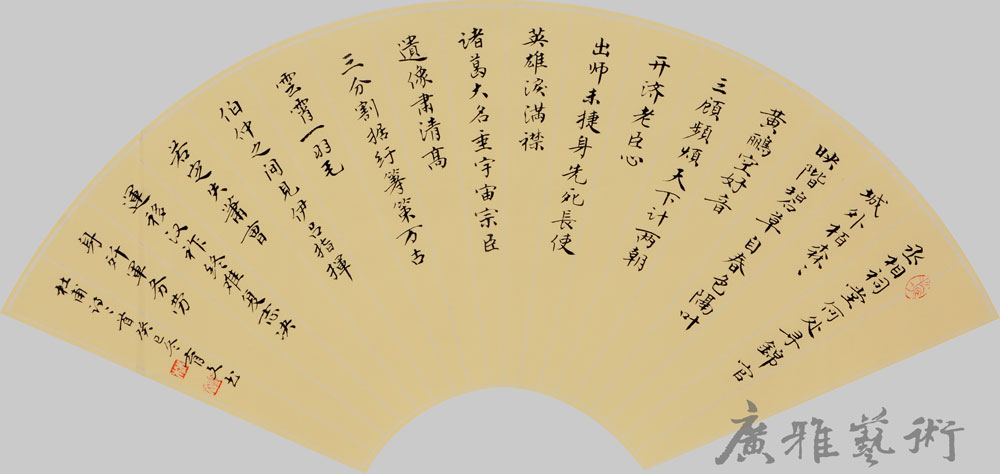 丞相祠堂何处寻錦官
城外柏森〻
映階碧草自春色隔叶
黃鸝空好音
三顾頻煩天下计两朝
开济老臣心
出师未捷身先死長使
英雄淚满襟
诸葛大名垂宇宙宗臣
遺像肃清高
三分割据纡筹策万古
雲霄一羽毛
伯仲之间見伊吕指揮
若定失萧曹
運移汉祚终难复志决
身歼軍务劳
杜甫诗二首癸巳冬育文书
廣雅藝術